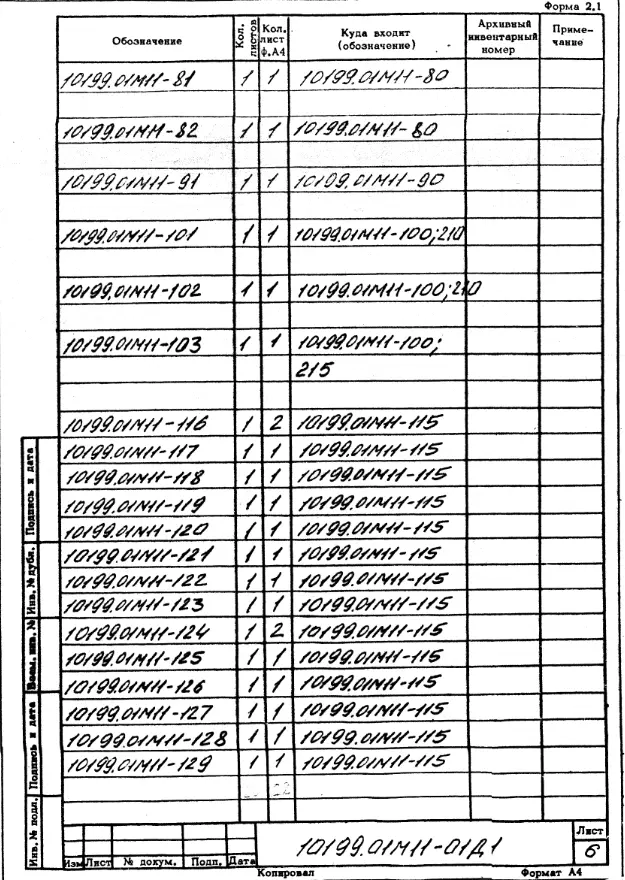 Форма 2.1
Обозначение Кол. листов Кол. лист ф.А4 Куда входит (обозначение) Архивный инвентарный номер Примечание
10199.01МН-81 1 1 10199.01МН-80
10199.01МН-82 1 1 10199.01МН-80
10199.01МН-91 1 1 10199.01МН-90
10199.01МН-101 1 1 10199.01МН-100;210
10199.01МН-102 1 1 10199.01МН-100;210
10199.01МН-103 1 1 10199.01МН-100;
215
10199.01МН-116 1 2 10199.01МН-115
10199.01МН-117 1 1 10199.01МН-115
10199.01МН-118 1 1 10199.01МН-115
10199.01МН-119 1 1 10199.01МН-115
10199.01МН-120 1 1 10199.01МН-115
10199.01МН-121 1 1 10199.01МН-115
10199.01МН-122 1 1 10199.01МН-115
10199.01МН-123 1 1 10199.01МН-115
10199.01МН-124 1 2 10199.01МН-115
10199.01МН-125 1 1 10199.01МН-115
10199.01МН-126 1 1 10199.01МН-115
10199.01МН-127 1 1 10199.01МН-115
10199.01МН-128 1 1 10199.01МН-115
10199.01МН-129 1 1 10199.01МН-115
Подпись и дата
Инв. № дубл.
Взам. инв. №
Подпись и дата
Инв. № подл.
Изм Лист № докум. Подп. Дата
10199.01МН-01Д1
Лист
6
Копировал Формат А4